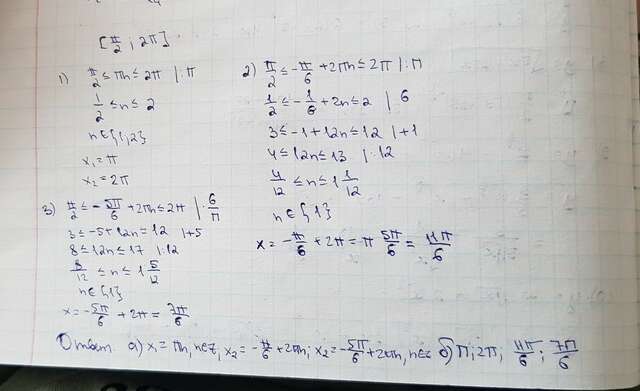 [π/2 ; 2π]
1) π/2 ≤ πn ≤ 2π | : π
1/2 ≤ n ≤ 2
n ∈ {1, 2}
x₁ = π
x₂ = 2π
2) π/2 ≤ -π/6 + 2πn ≤ 2π | : π
1/2 ≤ -1/6 + 2n ≤ 2 | 6
3 ≤ -1 + 12n ≤ 12 | +1
4 ≤ 12n ≤ 13 | : 12
4/12 ≤ n ≤ 1 1/12
n ∈ {1}
x = -π/6 + 2π = π 5π/6 = 11π/6
3) π/2 ≤ -5π/6 + 2πn ≤ 2π | · 6/π
3 ≤ -5 + 12n = 12 | +5
8 ≤ 12n ≤ 17 | : 12
8/12 ≤ n ≤ 1 5/12
n ∈ {1}
x = -5π/6 + 2π = 7π/6
Ответ: а) x = πn, n∈Z, x₂ = -π/6 + 2πn; x₂ = -5π/6 + 2πn, n∈Z б) π; 2π, 11π/6 ; 7π/6